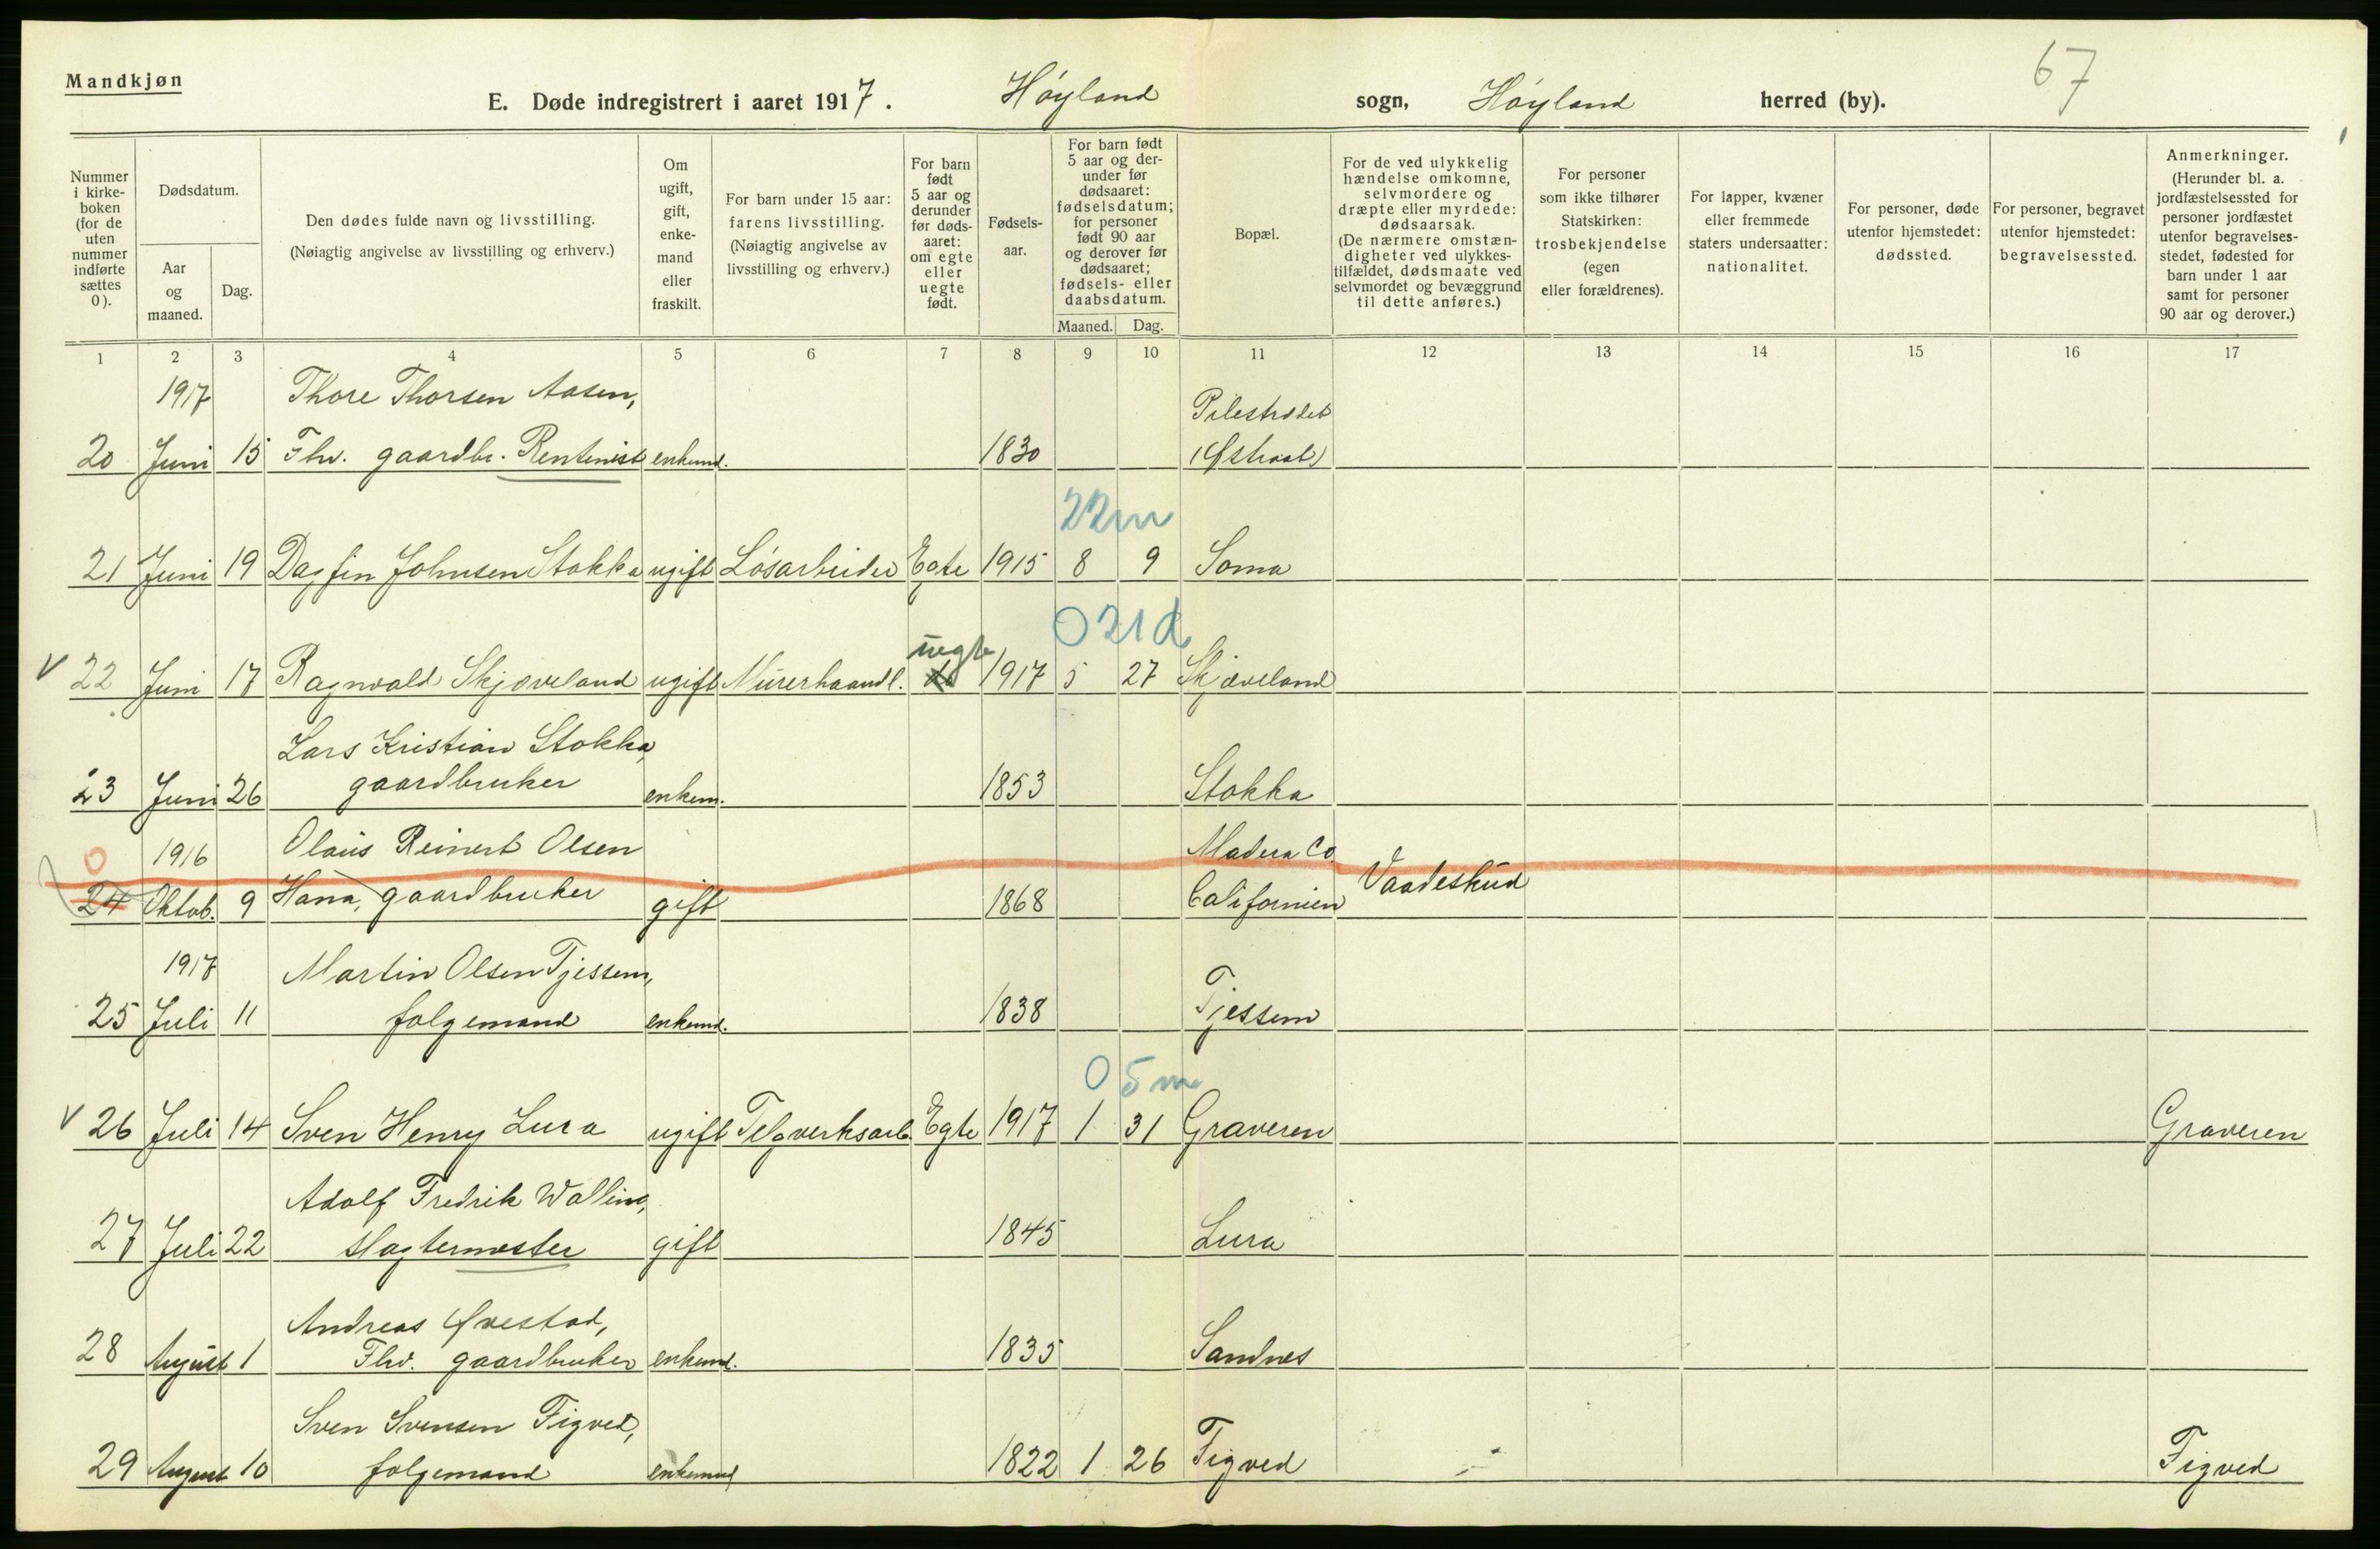 Mandkjøn
67
E. Døde indregistrert i aaret 1917. Höyland sogn, Höyland herred (by).
Nummer i kirkeboken (for de uten nummer indførte sættes 0).
Dødsdatum.
Aar og maaned.
Dag.
Den dødes fulde navn og livsstilling.
(Nøiagtig angivelse av livsstilling og erhverv.)
Om ugift, gift, enkemand eller fraskilt.
For barn under 15 aar: farens livsstilling.
(Nøiagtig angivelse av livsstilling og erhverv.)
For barn født 5 aar og derunder før dødsaaret: om egte eller uegte født.
Fødselsaar.
For barn født 5 aar og derunder før dødsaaret: fødselsdatum; for personer født 90 aar og derover før dødsaaret; fødsels- eller daabsdatum.
Maaned. Dag.
Bopæl.
For de ved ulykkelig hændelse omkomne, selvmordere og dræpte eller myrdede: dødsaarsak.
(De nærmere omstændigheter ved ulykkestilfældet, dødsmaate ved selvmordet og bevæggrund til dette anføres.)
For personer som ikke tilhører Statskirken: trosbekjendelse (egen eller forældrenes).
For lapper, kvæner eller fremmede staters undersaatter: nationalitet.
For personer, døde utenfor hjemstedet: dødssted.
For personer, begravet utenfor hjemstedet: begravelsessted.
Anmerkninger.
(Herunder bl. a. jordfæstelsessted for personer jordfæstet utenfor begravelsesstedet, fødested for barn under 1 aar samt for personer 90 aar og derover.)
1 2 3 4 5 6 7 8 9 10 11 12 13 14 15 16 17
1917 Thore Thorsen Aasen, Pilestrædet
20 Juni 15 Fhv. gaardbr. Rentenist enkemd. 1830 (Østraat)
22m
21 Juni 19 Dagfin Johnsen Stokka ugift Løsarbeider Egte 1915 8 9 Soma
0 21d
uegte
v 22 Juni 17 Ragnvald Skjæveland ugift Murerhaandl. 1917 5 27 Skjæveland
Lars Kristian Stokka,
23 Juni 26 gaardbruker enkem. 1853 Stokka
0 1916 Olaus Reinert Olsen Madera Co.
24 Oktob. 9 Hana, gaardbruker gift 1868 Californien Vaadeskud
1917 Martin Olsen Tjessem,
25 Juli 11 følgemand enkemd. 1838 Tjessem
0 5m
v 26 Juli 14 Sven Henry Lura ugift Telgverksarb. Egte 1917 1 31 Graveren Graveren
Adolf Fredrik Walling,
27 Juli 22 slagtermester gift 1845 Lura
Andreas Øvestad,
28 August 1 Fhv. gaardbruker enkemd. 1835 Sandnes
Sven Svensen Figved,
29 August 10 følgemand enkemd 1822 1 26 Figved Figved